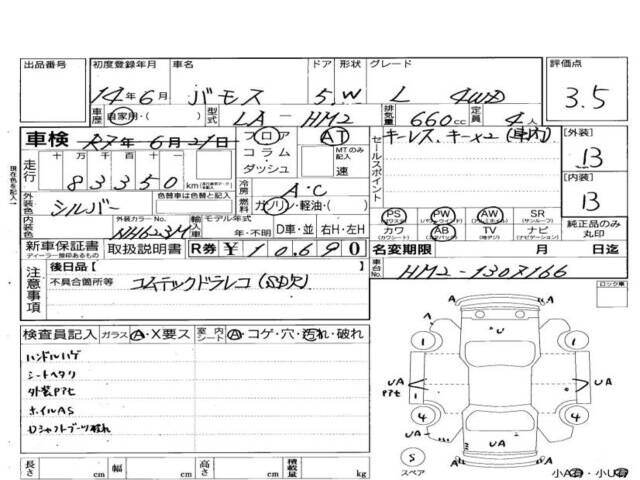 出品番号 初度登録年月 車名 ドア 形状 グレード 評価点
14年6月 バモス 5.W L 4WD 3.5
車歴 自家用・( ) 型式 LA-HM2 排気量 660cc 定員 4人
車検 年6月21日 フロア AT
コラム・ダッシュ MTのみ記入 速
セールスポイント キーレス、キー×2(車内)
[外装] 13
[内装] 13
走行 十万千百十 83350km
冷房 A・C
外装色 シルバー 色替車は色替と記入
燃料 ガソリン・軽油・( )
外装カラーNo. NH623M 輸入車 モデル年式 年・不明 D車・並 右H・左H
PS PW AW SR
(パワステ) (パワーウインド) (アルミホイル) (サンルーフ)
カワ AB TV ナビ
(カワシート) (エアバック) (地デジ) (ナビゲーション)
純正品のみ丸印
新車保証書 取扱説明書 R券 ¥10690
ディーラー捺印あるもの
名変期限 月 日迄
車台No. HM2-1307166
注意事項 後日品[ ]
不具合箇所等 コムテックドラレコ(SD欠)
ロック車
検査員記入 ガラス A・X要ス 室内シート A・コゲ・穴・汚れ・破れ
ハンドルハゲ
シートヘタリ
外装Pアセ
ホイルAS
Dシャフトブーツ破れ
A U A
1 1
UA Pアセ 1 UA
4 4
UA A
3 UA
S スペア
A A
小A有・小U有
長さ cm 幅 cm 高さ cm 積載量 kg
現在色を記入